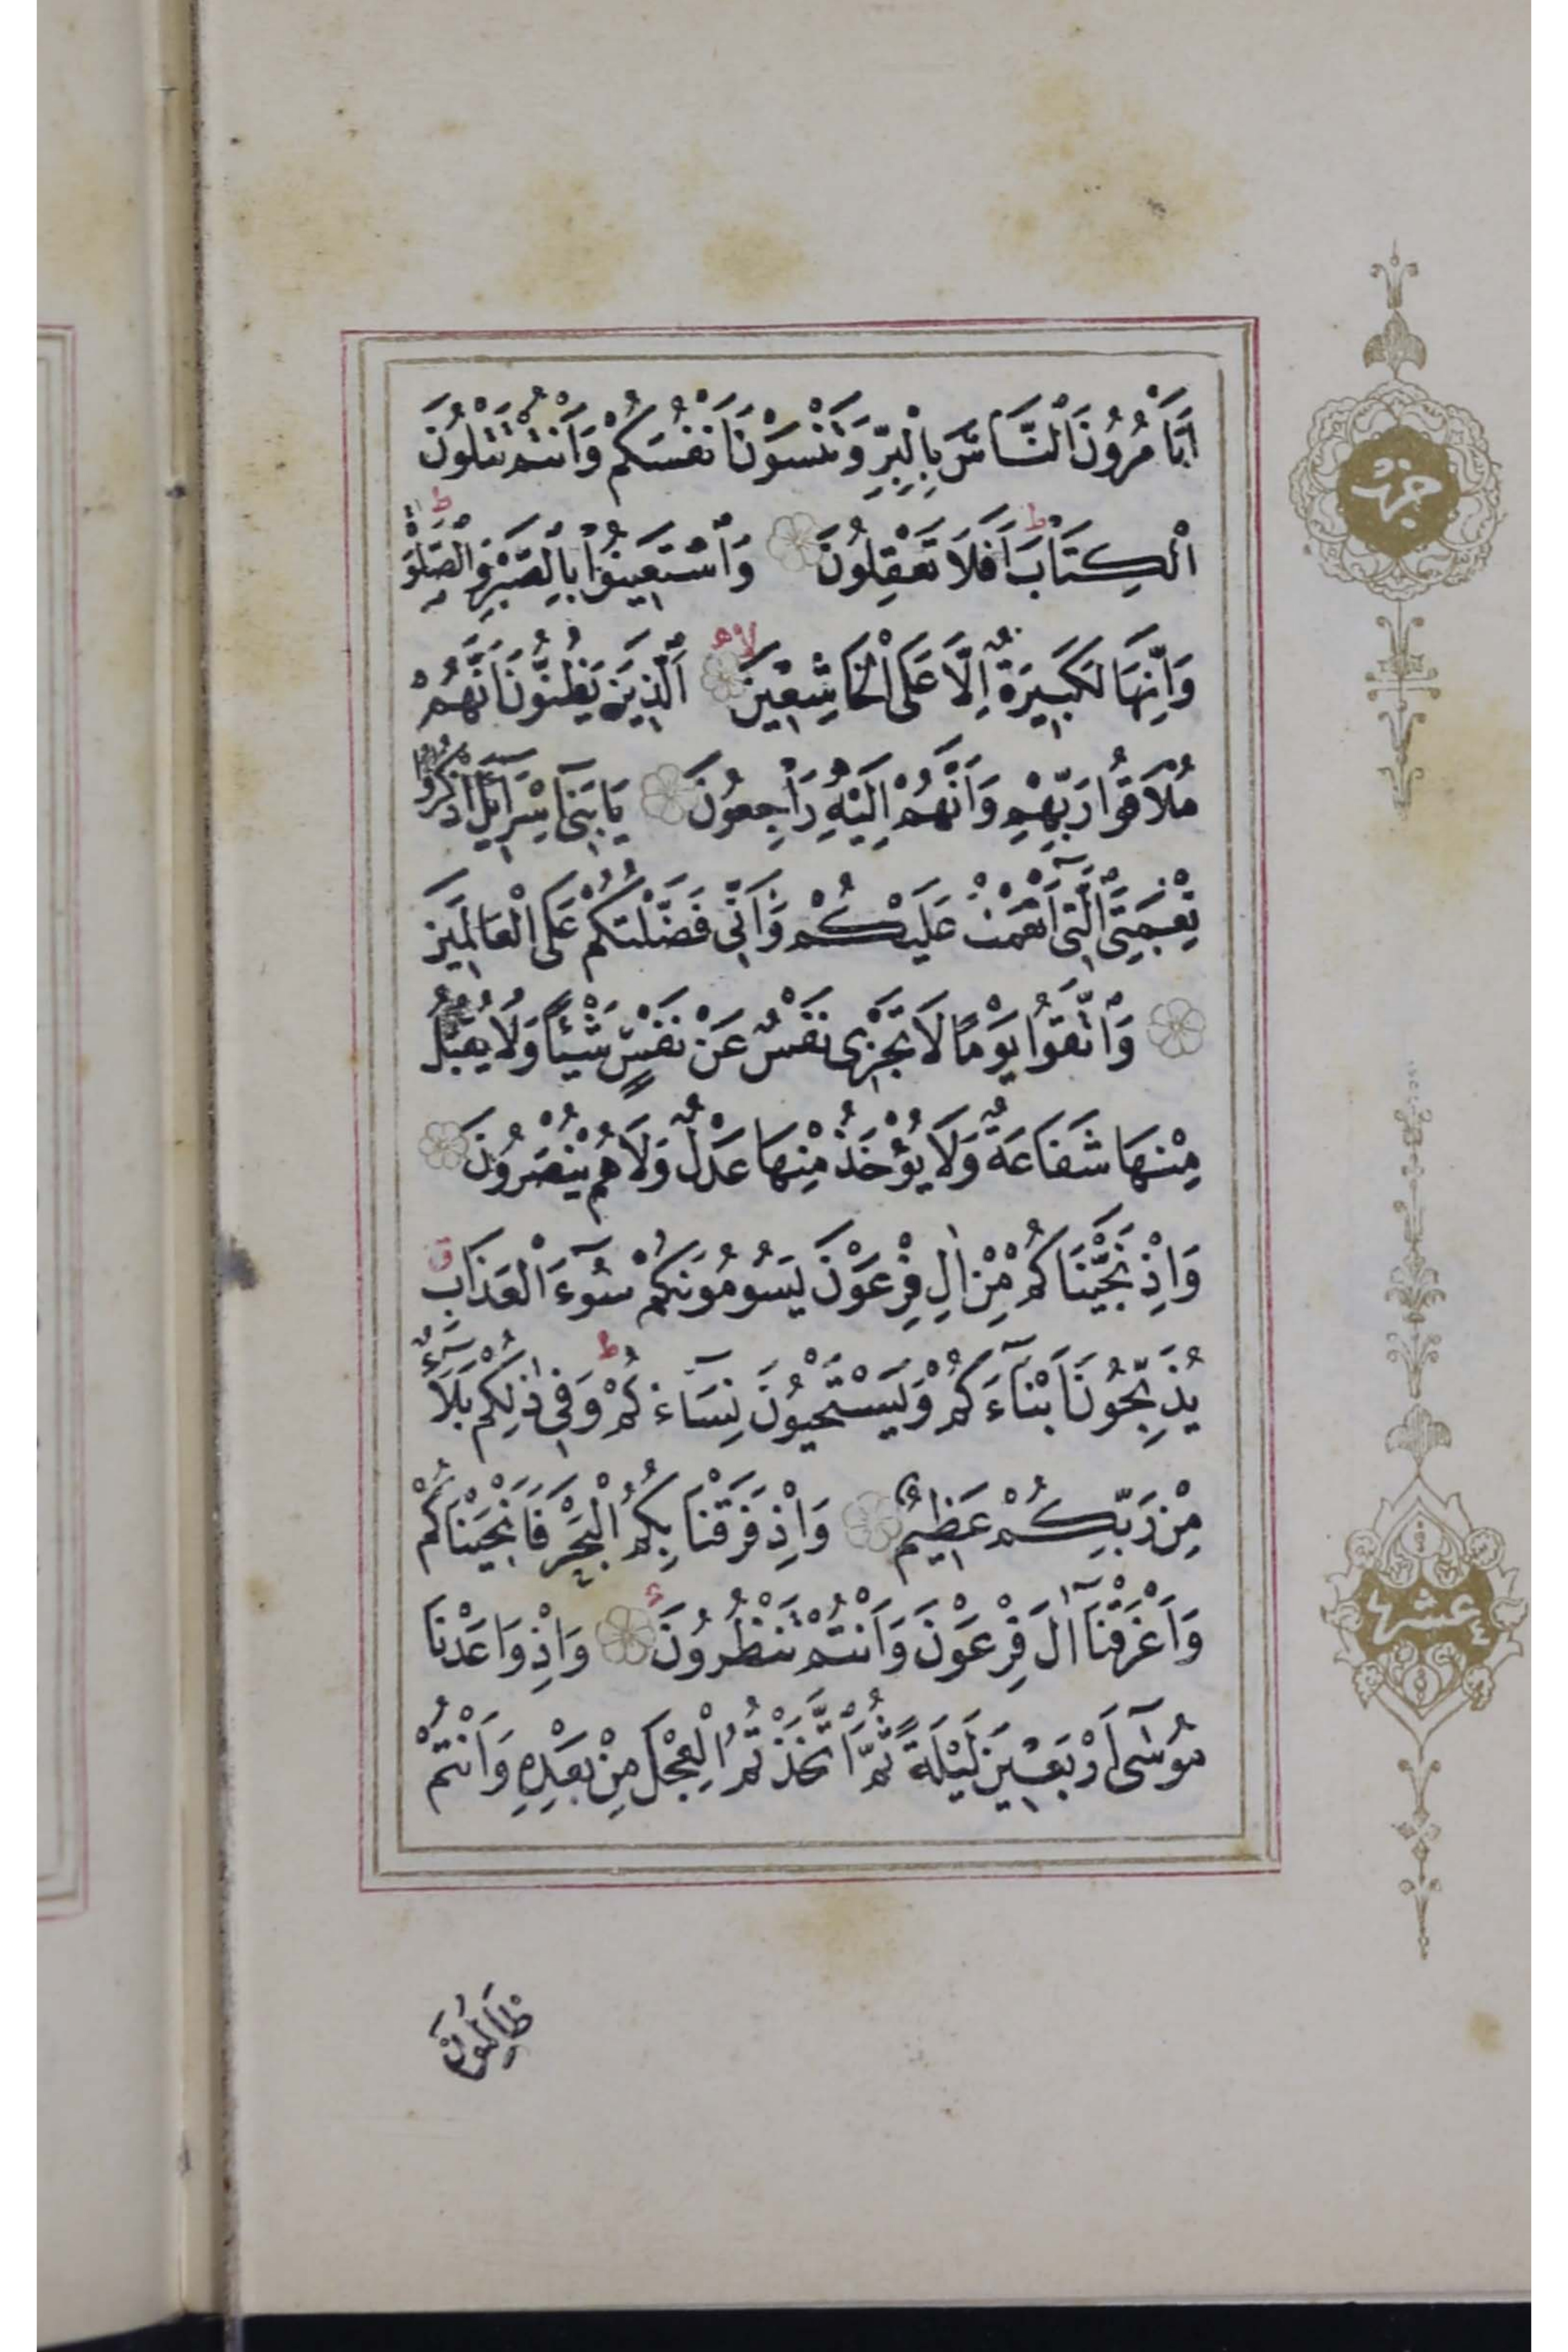 اَتَأْمُرُونَ النَّاسَ بِالْبِرِّ وَتَنْسَوْنَ اَنْفُسَكُمْ وَاَنْتُمْ تَتْلُونَ
الْكِتَابَ ط اَفَلَا تَعْقِلُونَ وَاسْتَعِينُوا بِالصَّبْرِ وَالصَّلٰوةِ ط
وَاِنَّهَا لَكَبِيرَةٌ اِلَّا عَلَى الْخَاشِعِينَ لا اَلَّذِينَ يَظُنُّونَ اَنَّهُمْ
مُلَاقُوا رَبِّهِمْ وَاَنَّهُمْ اِلَيْهِ رَاجِعُونَ يَا بَنِى اِسْرَآئِلَ اذْكُرُوا
نِعْمَتِىَ الَّتِى اَنْعَمْتُ عَلَيْكُمْ وَاَنِّى فَضَّلْتُكُمْ عَلَى الْعَالَمِينَ
وَاتَّقُوا يَوْمًا لَا تَجْزِى نَفْسٌ عَنْ نَفْسٍ شَيْئًا وَلَا يُقْبَلُ
مِنْهَا شَفَاعَةٌ وَلَا يُؤْخَذُ مِنْهَا عَدْلٌ وَلَا هُمْ يُنْصَرُونَ
وَاِذْ نَجَّيْنَاكُمْ مِنْ اٰلِ فِرْعَوْنَ يَسُومُونَكُمْ سُوٓءَ الْعَذَابِ ق
يُذَبِّحُونَ اَبْنَآءَكُمْ وَيَسْتَحْيُونَ نِسَآءَكُمْ ط وَفِى ذٰلِكُمْ بَلَآءٌ
مِنْ رَبِّكُمْ عَظِيمٌ وَاِذْ فَرَقْنَا بِكُمُ الْبَحْرَ فَاَنْجَيْنَاكُمْ
وَاَغْرَقْنَآ اٰلَ فِرْعَوْنَ وَاَنْتُمْ تَنْظُرُونَ وَاِذْ وَاعَدْنَا
مُوسٰٓى اَرْبَعِينَ لَيْلَةً ثُمَّ اتَّخَذْتُمُ الْعِجْلَ مِنْ بَعْدِهِ وَاَنْتُمْ
ظَالِمُونَ
حزب
عشر